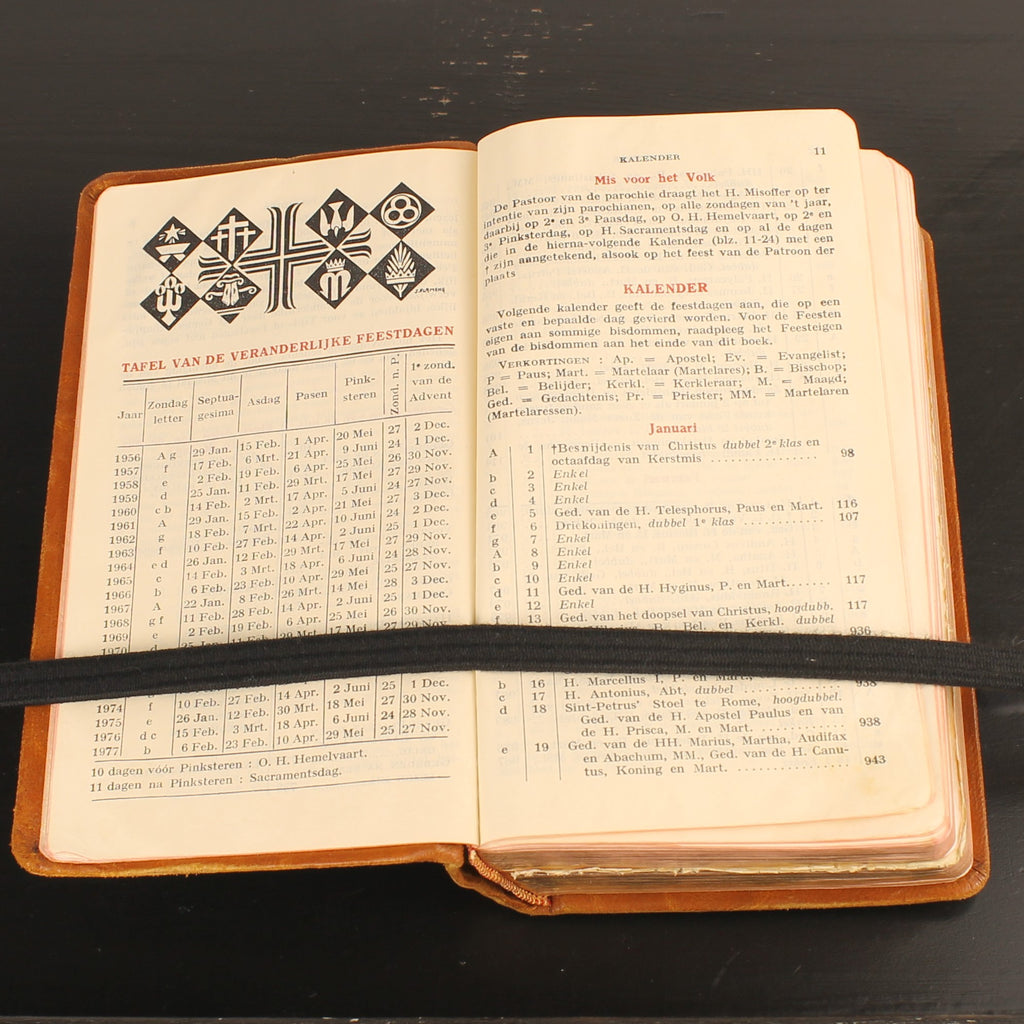 TAFEL VAN DE VERANDERLIJKE FEESTDAGEN
Jaar Zondag letter Septua-gesima Asdag Pasen Pink-steren Zond. n. P. 1e zond. van de Advent
1956 A g 29 Jan. 15 Feb. 1 Apr. 20 Mei 27 2 Dec.
1957 f 17 Feb. 6 Mrt. 21 Apr. 9 Juni 24 1 Dec.
1958 e 2 Feb. 19 Feb. 6 Apr. 25 Mei 26 30 Nov.
1959 d 25 Jan. 11 Feb. 29 Mrt. 17 Mei 27 29 Nov.
1960 c b 14 Feb. 2 Mrt. 17 Apr. 5 Juni 24 27 Nov.
1961 A 29 Jan. 15 Feb. 2 Apr. 21 Mei 27 3 Dec.
1962 g 18 Feb. 7 Mrt. 22 Apr. 10 Juni 24 2 Dec.
1963 f 10 Feb. 27 Feb. 14 Apr. 2 Juni 25 1 Dec.
1964 e d 26 Jan. 12 Feb. 29 Mrt. 17 Mei 27 29 Nov.
1965 c 14 Feb. 3 Mrt. 18 Apr. 6 Juni 24 28 Nov.
1966 b 6 Feb. 23 Feb. 10 Apr. 29 Mei 25 27 Nov.
1967 A 22 Jan. 8 Feb. 26 Mrt. 14 Mei 28 3 Dec.
1968 g f 11 Feb. 28 Feb. 14 Apr. 2 Juni 25 1 Dec.
1969 e 2 Feb. 19 Feb. 6 Apr. 25 Mei 26 30 Nov.
1970 d
1974 f 10 Feb. 27 Feb. 14 Apr. 2 Juni 25 1 Dec.
1975 e 26 Jan. 12 Feb. 30 Mrt. 18 Mei 27 30 Nov.
1976 d c 15 Feb. 3 Mrt. 18 Apr. 6 Juni 24 28 Nov.
1977 b 6 Feb. 23 Feb. 10 Apr. 29 Mei 25 27 Nov.
10 dagen vóór Pinksteren : O. H. Hemelvaart.
11 dagen na Pinksteren : Sacramentsdag.
KALENDER 11
Mis voor het Volk
De Pastoor van de parochie draagt het H. Misoffer op ter
intentie van zijn parochianen, op alle zondagen van 't jaar,
daarbij op 2e en 3e Paasdag, op O. H. Hemelvaart, op 2e en
3e Pinksterdag, op H. Sacramentsdag en op al de dagen
die in de hierna-volgende Kalender (blz. 11-24) met een
† zijn aangetekend, alsook op het feest van de Patroon der
plaats
KALENDER
Volgende kalender geeft de feestdagen aan, die op een
vaste en bepaalde dag gevierd worden. Voor de Feesten
eigen aan sommige bisdommen, raadpleeg het Feesteigen
van de bisdommen aan het einde van dit boek.
VERKORTINGEN : Ap. = Apostel; Ev. = Evangelist;
P = Paus; Mart. = Martelaar (Martelares); B. = Bisschop;
Bel. = Belijder; Kerkl. = Kerkleraar; M. = Maagd;
Ged. = Gedachtenis; Pr. = Priester; MM. = Martelaren
(Martelaressen).
Januari
A 1 †Besnijdenis van Christus dubbel 2e klas en
octaafdag van Kerstmis .............. 98
b 2 Enkel
c 3 Enkel
d 4 Enkel
e 5 Ged. van de H. Telesphorus, Paus en Mart. 116
f 6 Driekoningen, dubbel 1e klas ............ 107
g 7 Enkel
A 8 Enkel
b 9 Enkel
c 10 Enkel
d 11 Ged. van de H. Hyginus, P. en Mart....... 117
e 12 Enkel
f 13 Ged. van het doopsel van Christus, hoogdubb. 117
B. Bel. en Kerkl. dubbel
936
b 16 H. Marcellus I, P. en Mart.,
c 17 H. Antonius, Abt, dubbel .............. 938
d 18 Sint-Petrus' Stoel te Rome, hoogdubbel.
Ged. van de H. Apostel Paulus en van
de H. Prisca, M. en Mart. ............ 938
e 19 Ged. van de HH. Marius, Martha, Audifax
en Abachum, MM., Ged. van de H. Canu-
tus, Koning en Mart. ................ 943